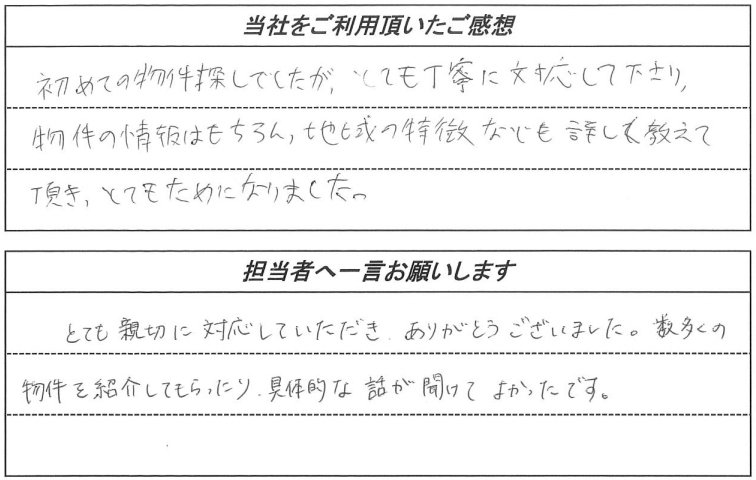 当社をご利用頂いたご感想
初めての物件探しでしたが、とても丁寧に対応して下さり、
物件の情報はもちろん、地域の特徴なども詳しく教えて
頂き、とてもためになりました。
担当者へ一言お願いします
とても親切に対応していただき、ありがとうございました。数多くの
物件を紹介してもらったり、具体的な話が聞けてよかったです。